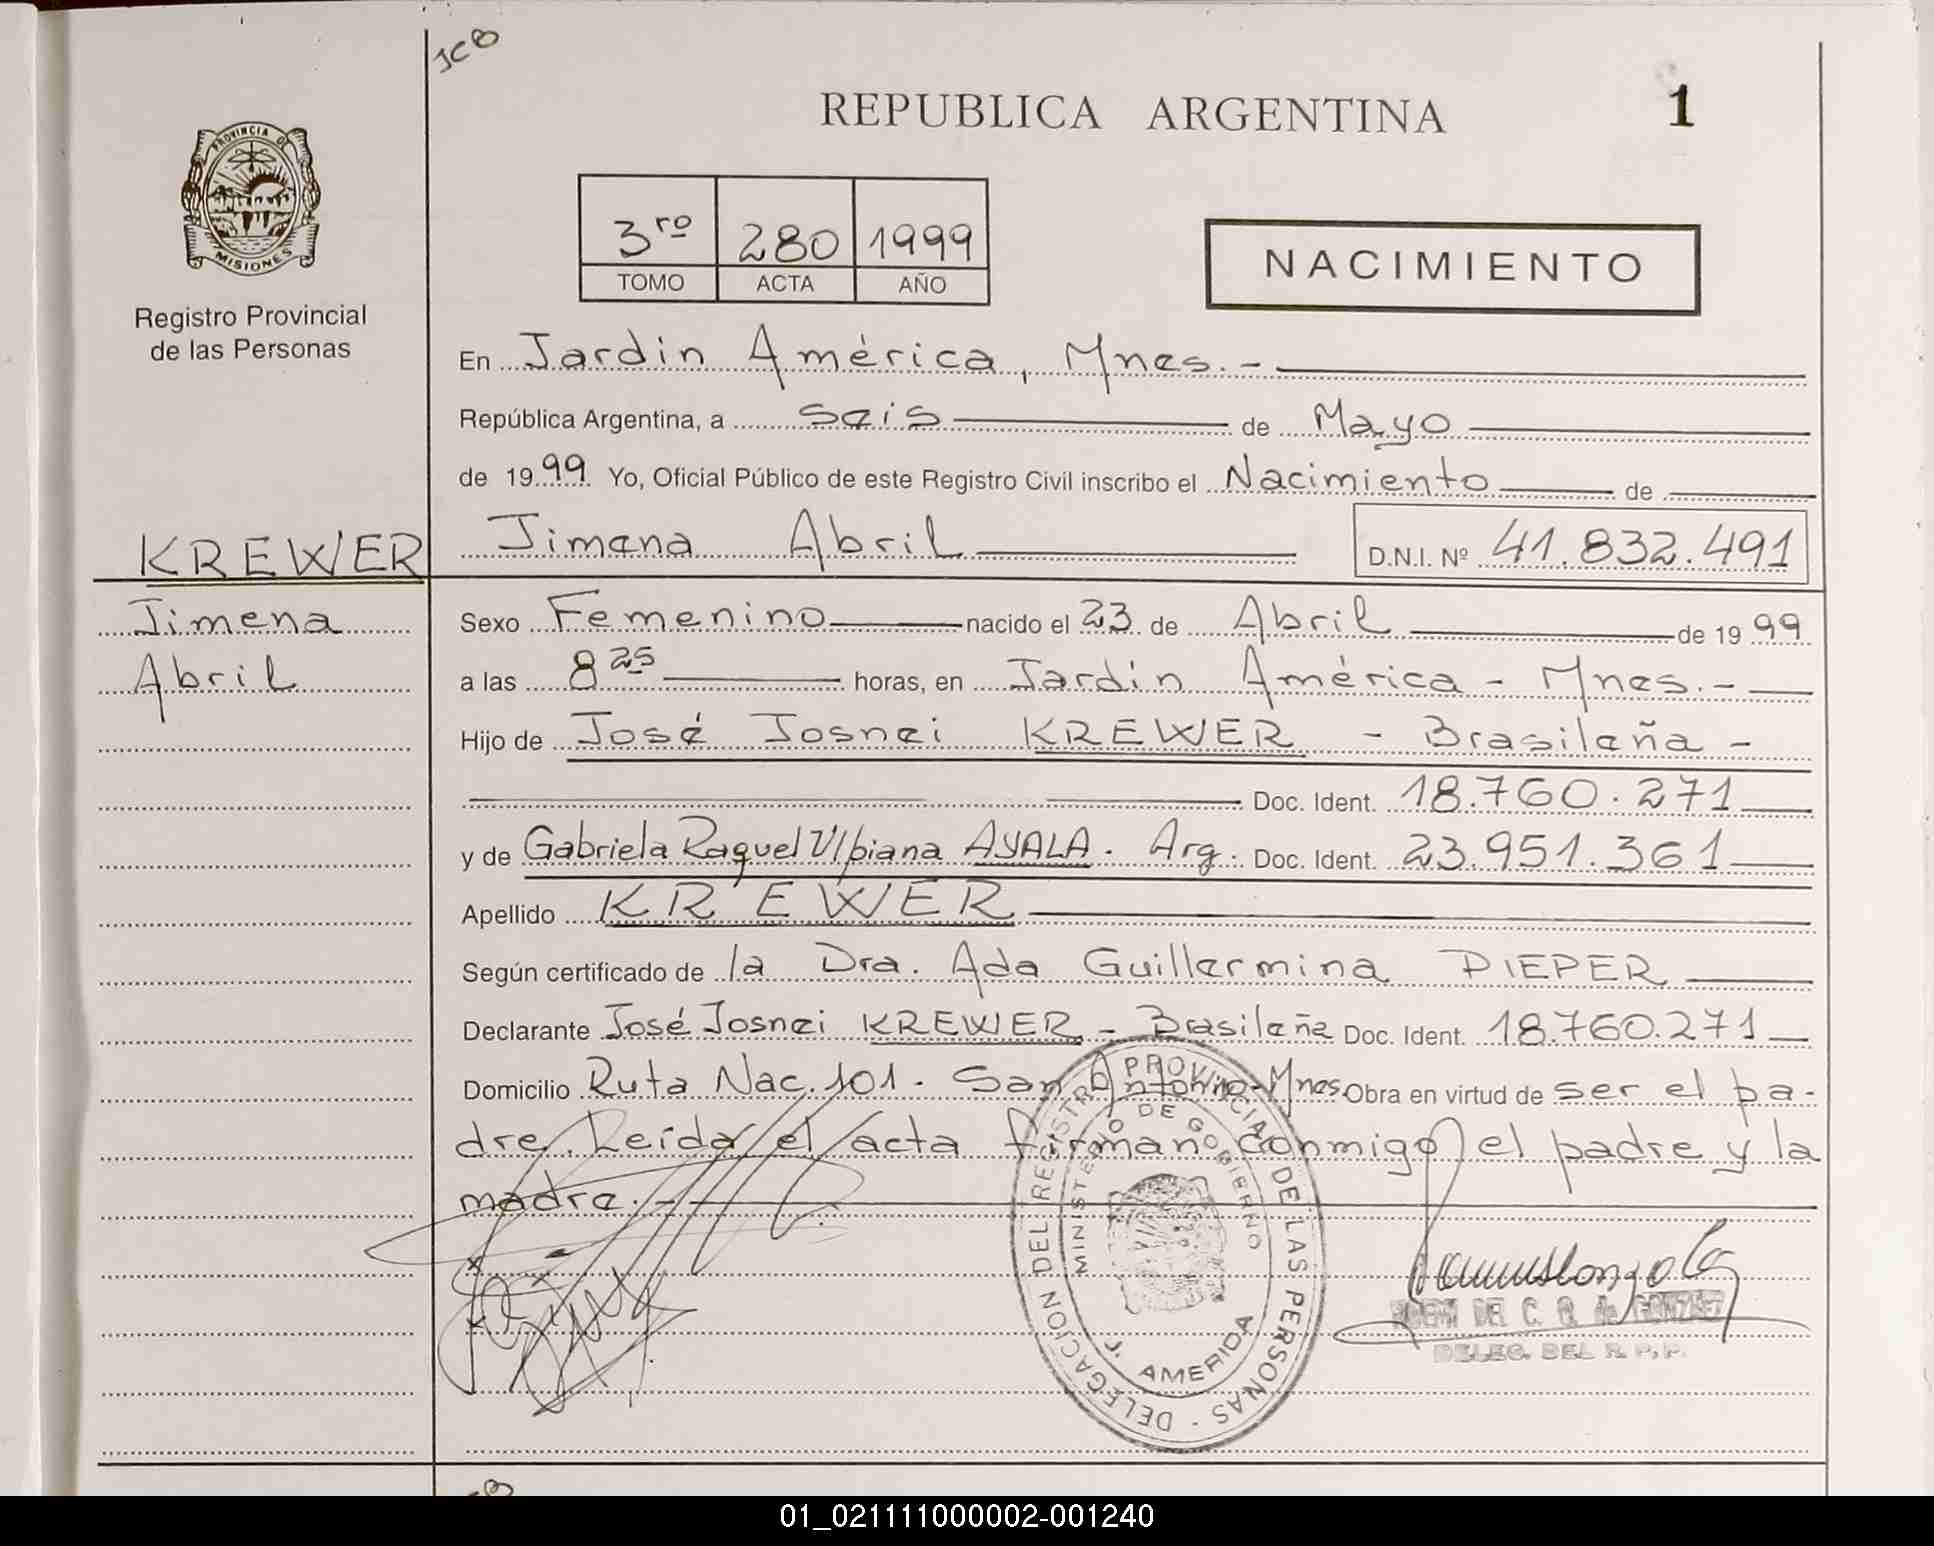 JCB
REPUBLICA ARGENTINA
1
PROVINCIA DE
MISIONES
Registro Provincial
de las Personas
3ro 280 1999
TOMO ACTA AÑO
NACIMIENTO
En Jardin América, Mnes.-
República Argentina, a seis de Mayo
de 1999. Yo, Oficial Público de este Registro Civil inscribo el Nacimiento de
KREWER Jimena Abril D.N.I. Nº 41.832.491
Jimena
Abril
Sexo Femenino nacido el 23 de Abril de 1999
a las 8 25 horas, en Jardin América - Mnes.-
Hijo de José Josnei KREWER - Brasileña -
Doc. Ident. 18.760.271
y de Gabriela Raquel Ulpiana AYALA. Arg. Doc. Ident. 23.951.361
Apellido KREWER
Según certificado de la Dra. Ada Guillermina PIEPER
Declarante José Josnei KREWER - Brasileña Doc. Ident. 18.760.271
Domicilio Ruta Nac. 101. San Antonio-Mnes. Obra en virtud de ser el pa-
dre. Leída el acta firman conmigo el padre y la
madre.-
DELEGACION DEL REGISTRO PROVINCIAL DE LAS PERSONAS
MINISTERIO DE GOBIERNO
J. AMERIDA
DELEG. DEL R.P.P.
01_021111000002-001240